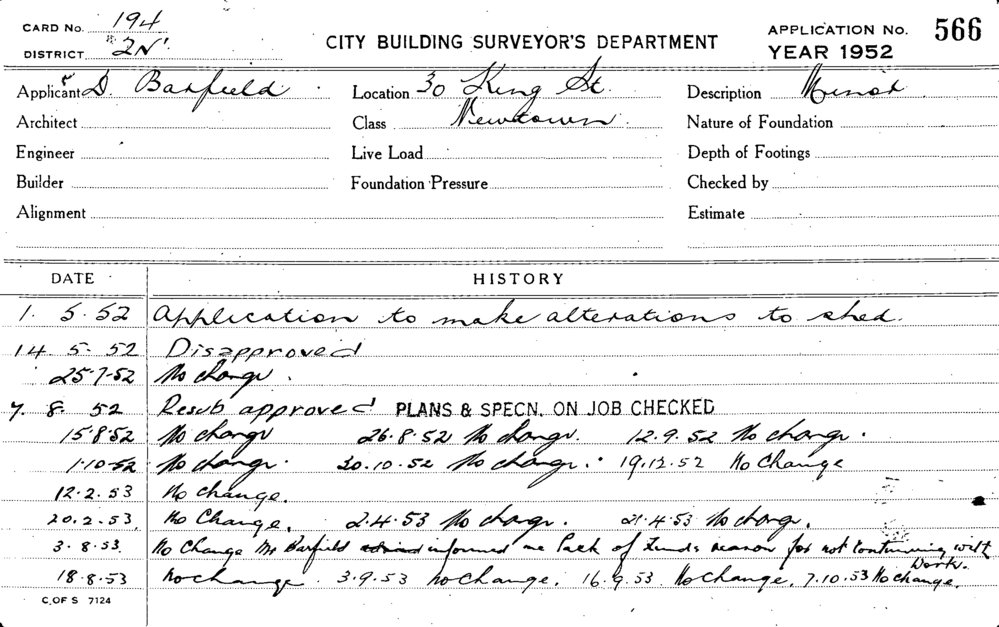 CARD No. 194
DISTRICT "2N"
CITY BUILDING SURVEYOR'S DEPARTMENT
APPLICATION No. 566
YEAR 1952
Applicant D. Barfield Location 30 King St. Description Minor
Architect Class Newtown. Nature of Foundation
Engineer Live Load Depth of Footings
Builder Foundation Pressure Checked by
Alignment Estimate
DATE HISTORY
1. 5. 52 Application to make alterations to shed.
14. 5. 52 Disapproved
25-7-52 No change.
7. 8. 52 Resub approved PLANS & SPECN. ON JOB CHECKED
15.8.52 No change 26.8.52 No change. 12.9.52 No change.
1.10.52 No change. 20.10.52 No change. 19.12.52 No Change
12.2.53 No change.
20.2.53. No Change. 2.4.53 No change. 21.4.53 No change.
3.8.53. No Change Mr Barfield informed me lack of funds reason for not continuing with
Work.
18.8.53 No change. 3.9.53 No change. 16.9.53. No Change. 7.10.53 No change.
C OF S 7124